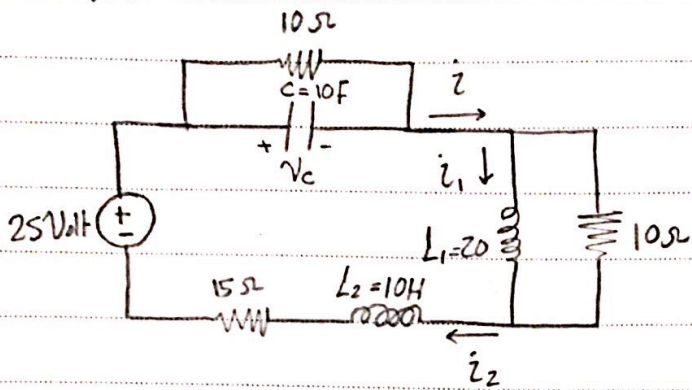 10Ω
C=10F
i
+ Vc -
i₁
25Volt
+
-
L₁=20
10Ω
15Ω
L₂=10H
i₂